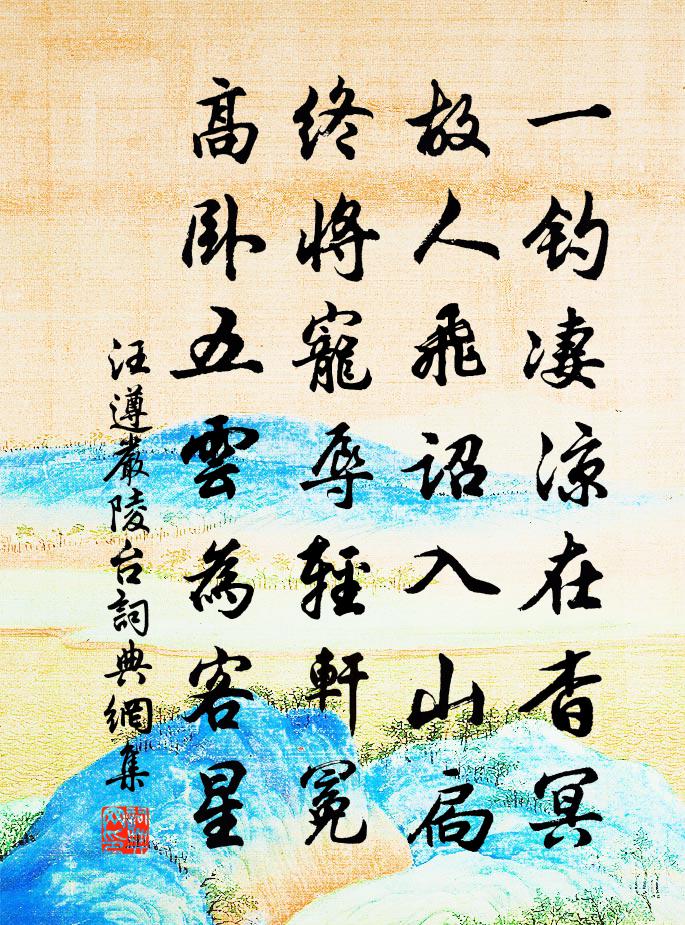 一釣凄涼在杳冥
故人飛詔入山扃
終將寵辱輕軒冕
高卧五雲為客星
汪遵嚴陵台詞典網集